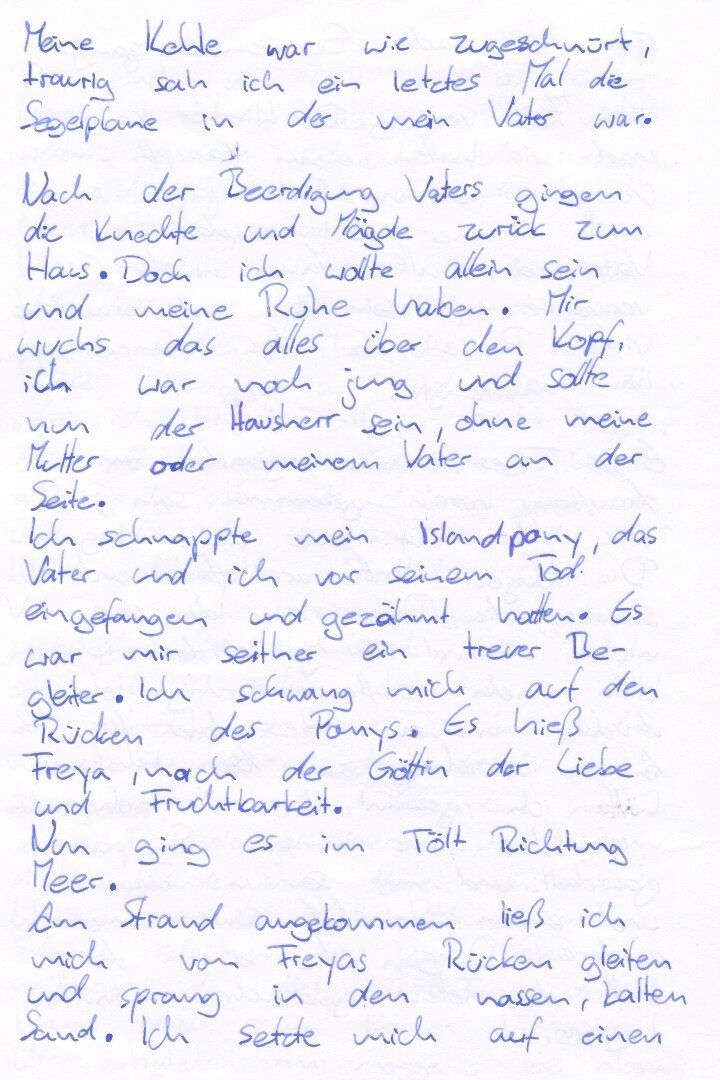 Meine Kehle war wie zugeschnürt,
traurig sah ich ein letztes Mal die
Segelplane in der mein Vater war.
Nach der Beerdigung Vaters gingen
die Knechte und Mägde zurück zum
Haus. Doch ich wollte allein sein
und meine Ruhe haben. Mir
wuchs das alles über den Kopf,
ich war noch jung und sollte
nun der Hausherr sein, ohne meine
Mutter oder meinem Vater an der
Seite.
Ich schnappte mein Islandpony, das
Vater und ich vor seinem Tod
eingefangen und gezähmt hatten. Es
war mir seither ein treuer Be-
gleiter. Ich schwang mich auf den
Rücken des Ponys. Es hieß
Freya, nach der Göttin der Liebe
und Fruchtbarkeit.
Nun ging es im Tölt Richtung
Meer.
Am Strand angekommen ließ ich
mich von Freyas Rücken gleiten
und sprang in den nassen, kalten
Sand. Ich setzte mich auf einen